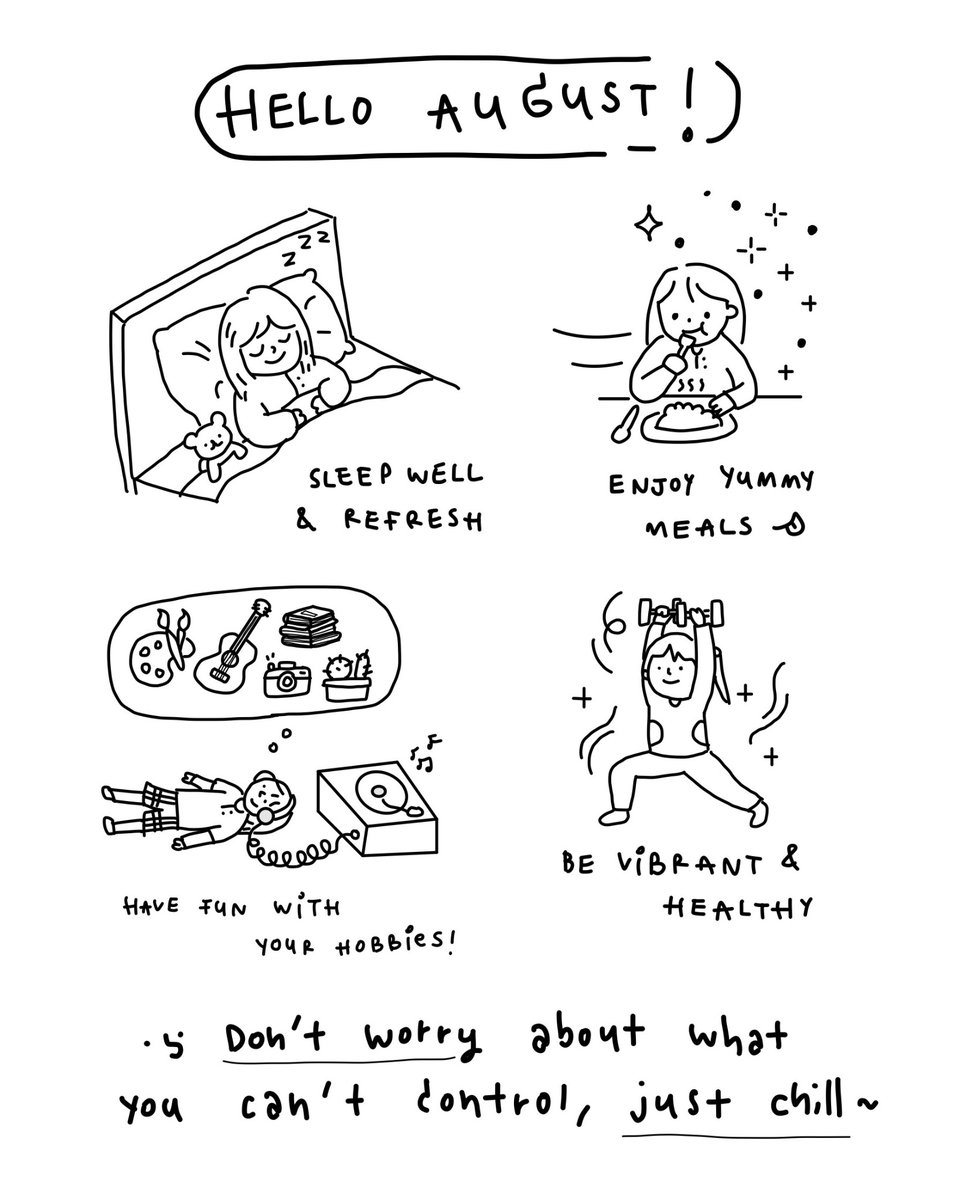 HELLO AUGUST!
z z z
SLEEP WELL
& REFRESH
ENJOY YUMMY
MEALS
HAVE FUN WiTH
YOUR HOBBiES!
BE ViBRANT &
HEALTHY
Don't worry about what
you can't control, just chill~